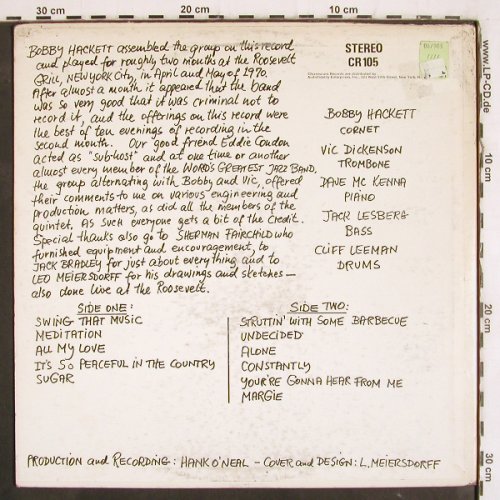 30 cm 20 cm 10 cm
BOBBY HACKETT assembled the group on this record
and played for roughly two months at the Roosevelt
GRILL, NEW YORK CITY, in April and May of 1970.
After almost a month it appeared that the band
was so very good that it was criminal not to
record it, and the offerings on this record were
the best of ten evenings of recording in the
second month. Our good friend Eddie Condon
acted as "sub-host" and at one time or another
almost every member of the WORLD'S GREATEST JAZZ BAND,
the group alternating with Bobby and Vic, offered
their comments to me on various engineering and
production matters, as did all the members of the
quintet. AS SUCH everyone gets a bit of the credit.
Special thanks also go to SHERMAN FAIRCHILD who
furnished equipment and encouragement, to
JACK BRADLEY for just about everything and to
LEO MEIERSDORFF for his drawings and sketches —
also done live at the Roosevelt.
STEREO
CR 105
BOBBY HACKETT
CORNET
VIC DICKENSON
TROMBONE
DAVE MC KENNA
PIANO
JACK LESBERG
BASS
CLIFF LEEMAN
DRUMS
SIDE ONE:
SWING THAT MUSIC
MEDITATION
ALL MY LOVE
IT'S SO PEACEFUL IN THE COUNTRY
SUGAR
SIDE TWO:
STRUTTIN' WITH SOME BARBECUE
UNDECIDED
ALONE
CONSTANTLY
YOU'RE GONNA HEAR FROM ME
MARGIE
PRODUCTION and RECORDING: HANK O'NEAL - COVER and DESIGN: L. MEIERSDORFF
www.LP-CD.de
10 cm
20 cm
30 cm